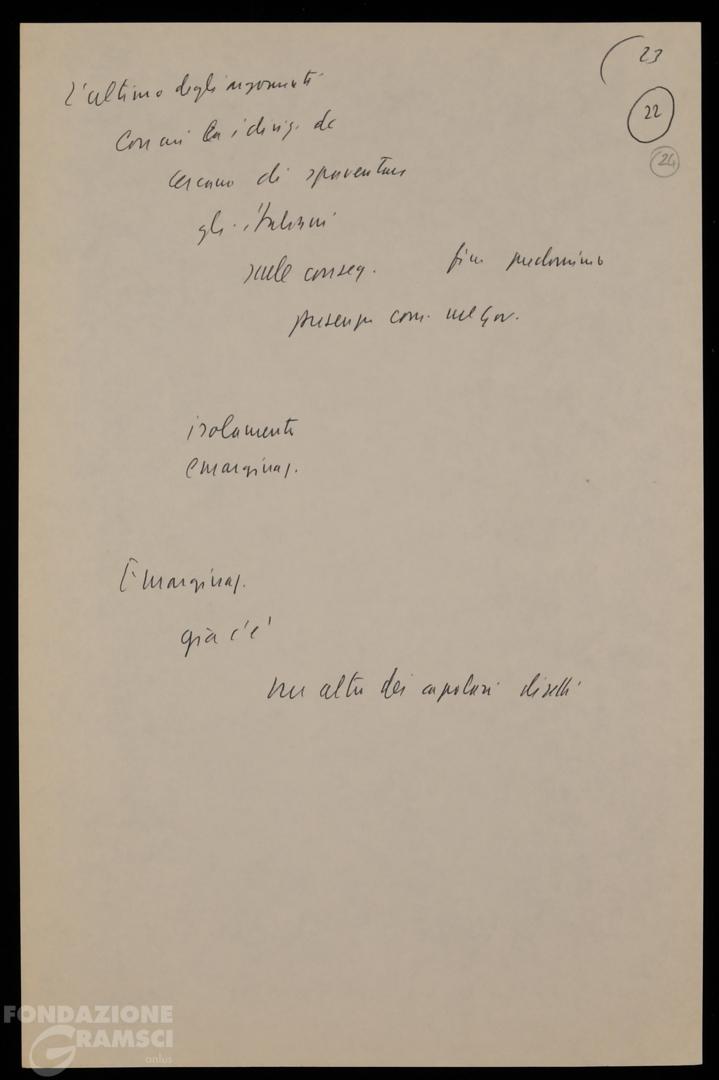 23
22
24
L'ultimo degli argomenti
con cui i dirig. dc
cercano di spaventare
gli italiani
sulle conseg. fin predominio
presenza com. nel Gov.
isolamento
emarginaz.
Emarginaz.
già c'è
un altro dei capolavori
FONDAZIONE
GRAMSCI
onlus